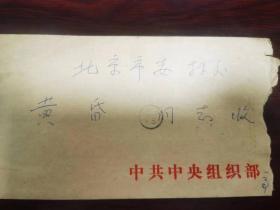 北京市委 转交
黄昏 同志收
中共中央组织部